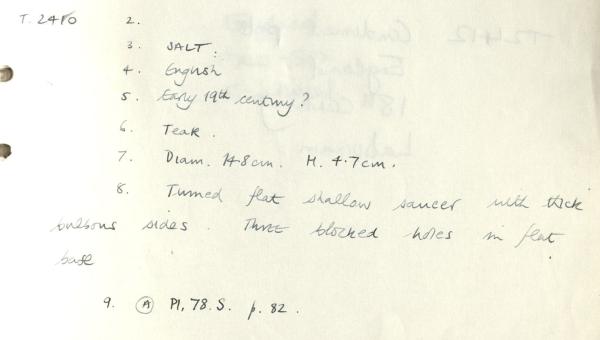 T. 2410 2.
3. SALT:
4. English
5. Early 19th century?
6. Teak.
7. Diam. 14.8cm. H. 4.7cm.
8. Turned flat shallow saucer with thick
bulbous sides. Three blocked holes in flat
base
9. Ⓐ Pl. 78. S. p. 82.